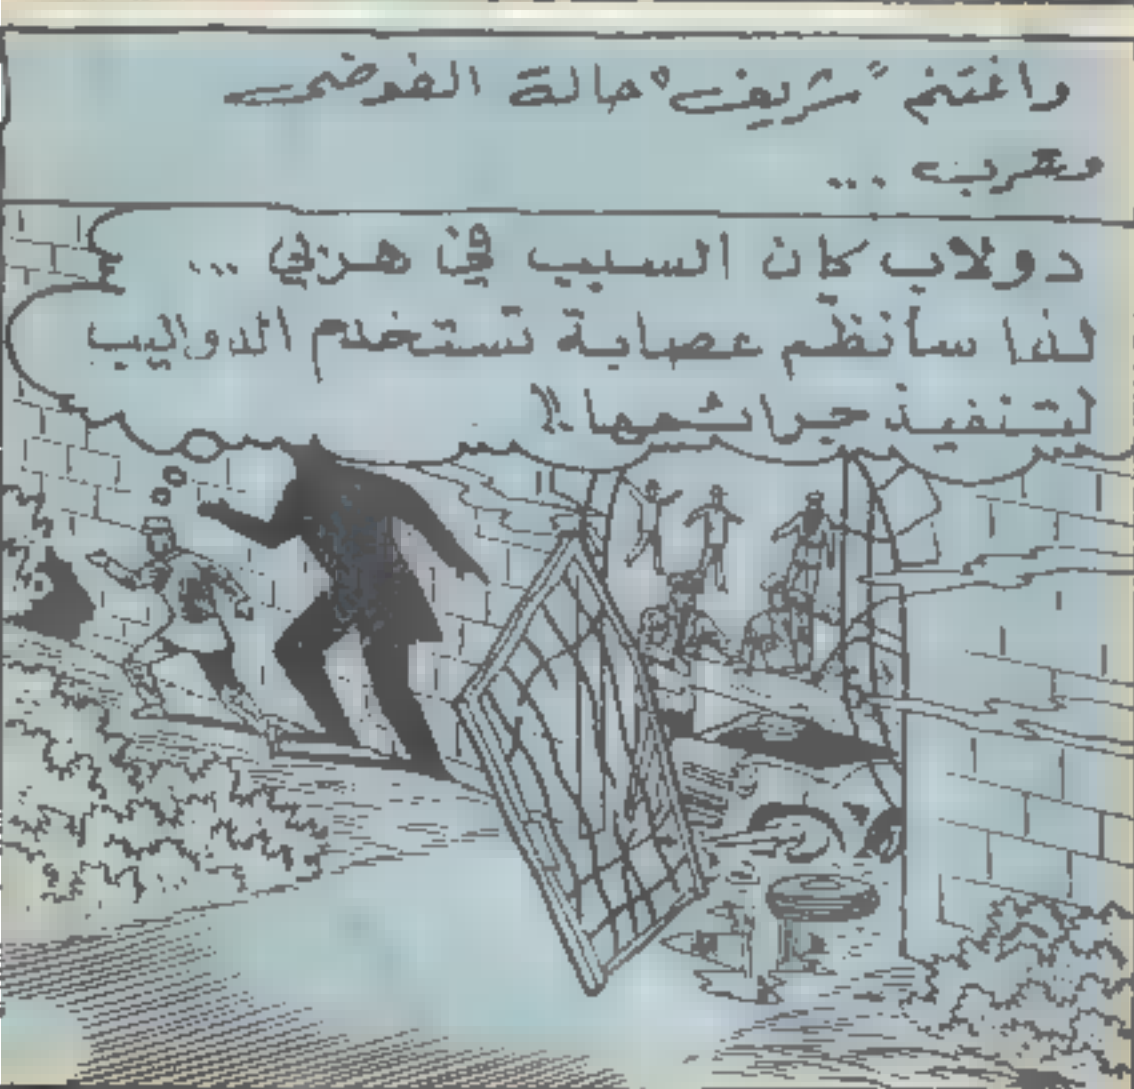 واغتنم "شريف" حالة الفوضى
وهرب ...
دولاب كان السبب في هربي ...
لذا سأنظم عصابة تستخدم الدواليب
لتنفيذ جرائمها !!